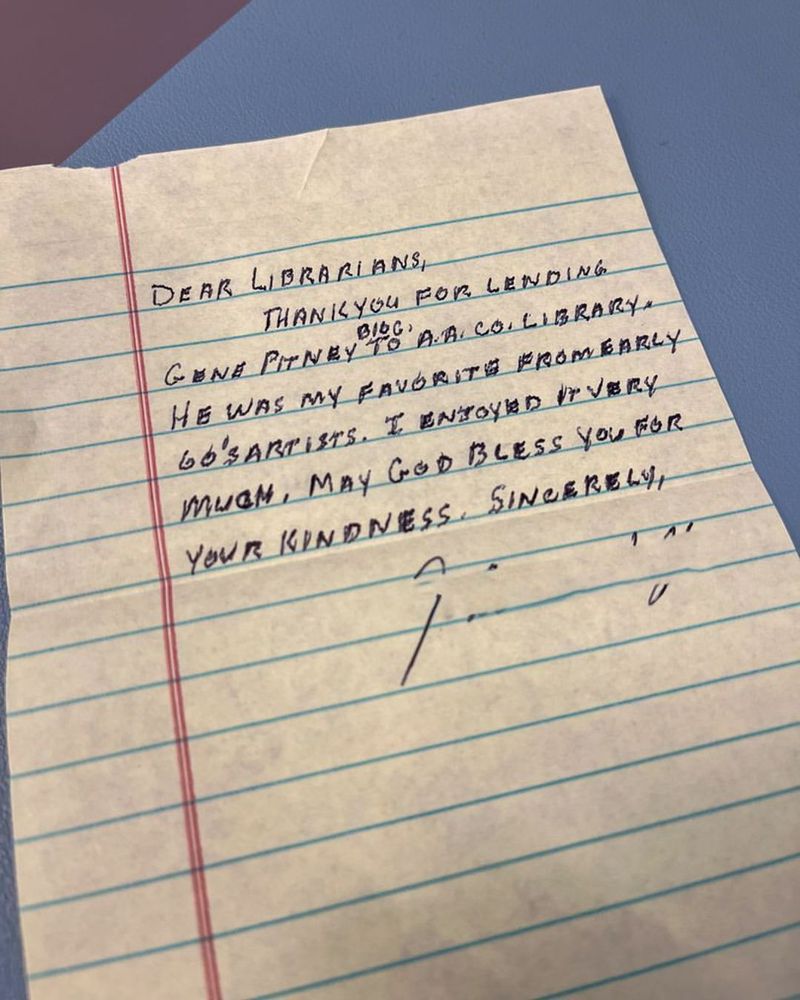 DEAR LIBRARIANS,
THANK YOU FOR LENDING
BIOG.
GENE PITNEY TO A.A. CO. LIBRARY.
HE WAS MY FAVORITE FROM EARLY
60'S ARTISTS. I ENJOYED IT VERY
MUCH. MAY GOD BLESS YOU FOR
YOUR KINDNESS. SINCERELY,